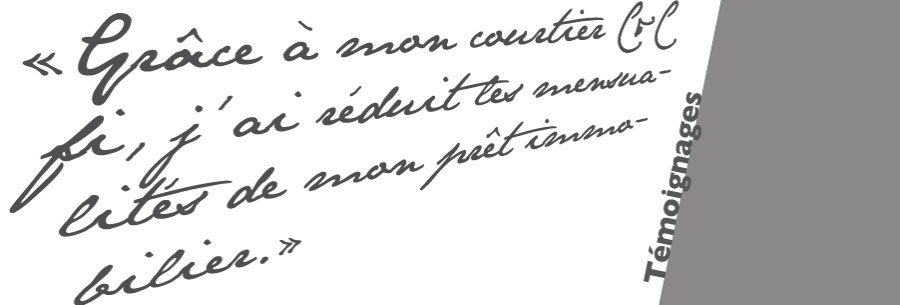 « Grâce à mon courtier C&C
fi, j'ai réduit les mensua-
lités de mon prêt immo-
bilier. »
Témoignages